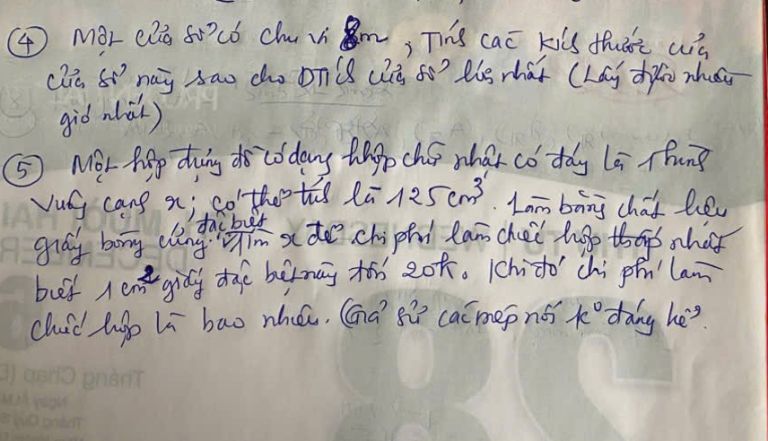 ④ Một cửa sổ có chu vi 8m, Tính các kích thước của
cửa sổ này sao cho DTích cửa sổ lớn nhất (Lấy được nhiều
gió nhất)
⑤ Một hộp đựng đồ có dạng hhộp chữ nhật có đáy là 1 hình
vuông cạnh x; có thể tích là 125cm³. Làm bằng chất liệu
giấy bóng cứng đặc biệt. Tìm x để chi phí làm chiếc hộp thấp nhất
biết 1cm² giấy đặc biệt này tốn 20k. Khi đó chi phí làm
chiếc hộp là bao nhiêu. (Giả sử các mép nối k° đáng kể.
DECEMBER
28
Tháng Chạp (Đ